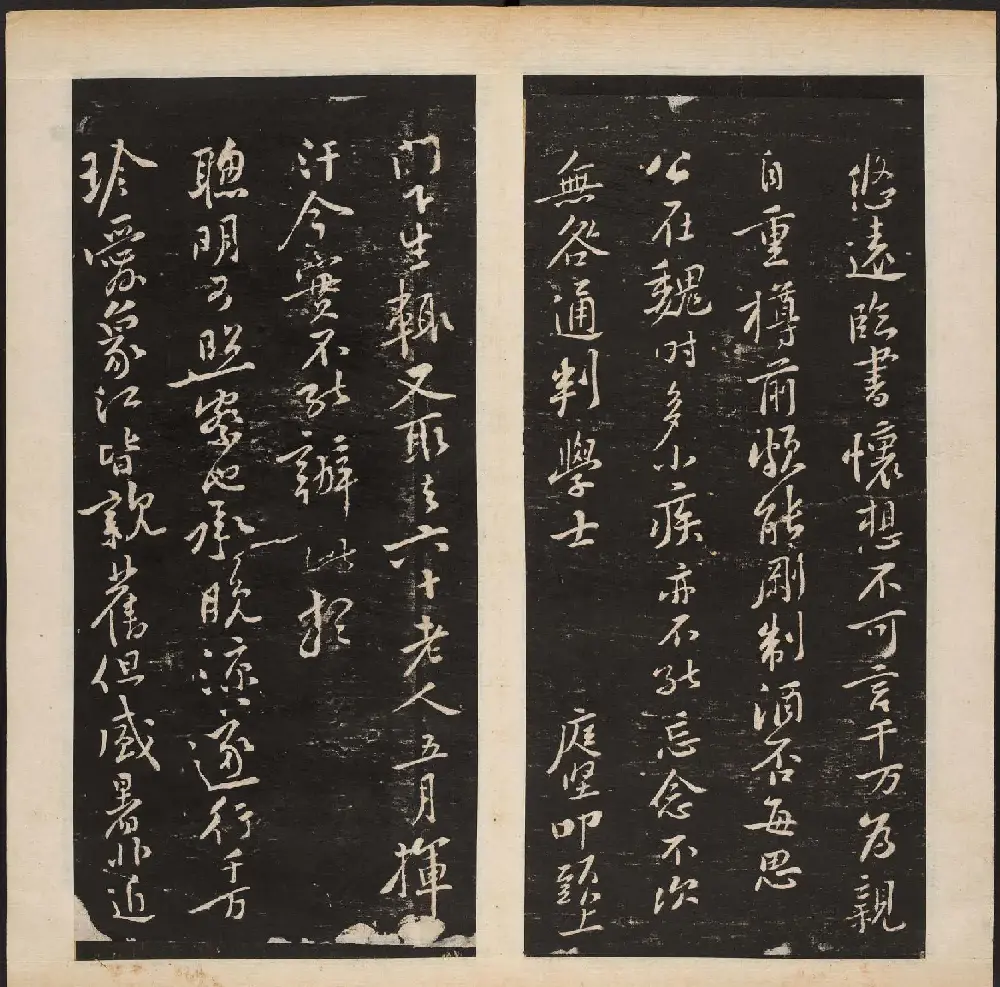 悠遠臨書懷想不可言千万為親
自重樽前頗能剛制酒否每思
公在魏時多小疾亦不能忘念不次
無咎通判學士 庭堅叩頭上
門下生輒又取去六十老人五月揮
汗今實不能辦此輕
聰明可照察也承晚涼遂行千万
珍愛象江皆親舊但盛暑非近